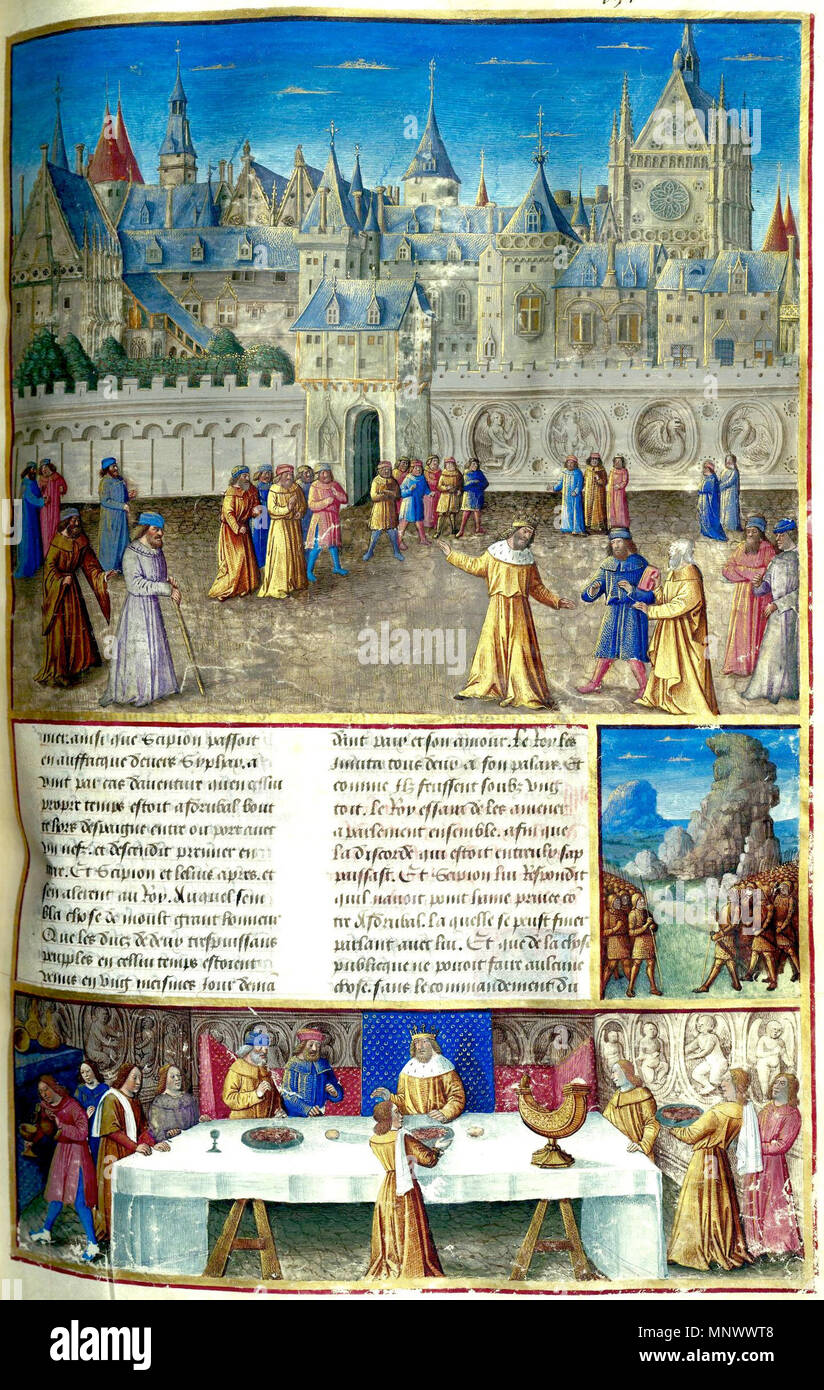 mer. ainsi que Scipion passoit
en auffricque devers Syphax. a
vint par cas daventure quen cellui
propre temps estoit asdrubal bout
te hors despaigne entre ou port avec
vii nefz. et descendit premier en
Et Scipion et lelius apres. et
sen alerent au Roy. Auquel sem
bla chose de moult grant honneur
Que les ducz de deux trespuissans
peuples en cellui temps estoient
venus en ung mesmes jour demã
dant paix et son amour. Le Roy les
invita tous deux a son palais. Et
comme ilz feussent soubz ung
toit. Le Roy essaia de les amener
a parlement ensemble. afin que
la discorde qui estoit entreulx sap
paisast. Et Scipion lui Respondit
quil navoit point haine privee cõ
tre Asdrubal. la quelle se peust finer
parlant avec lui. Et que de la chose
publicque ne pouoit faire aulcune
chose. sans le commandement du
alamy
Image ID: MNWWT8
www.alamy.com